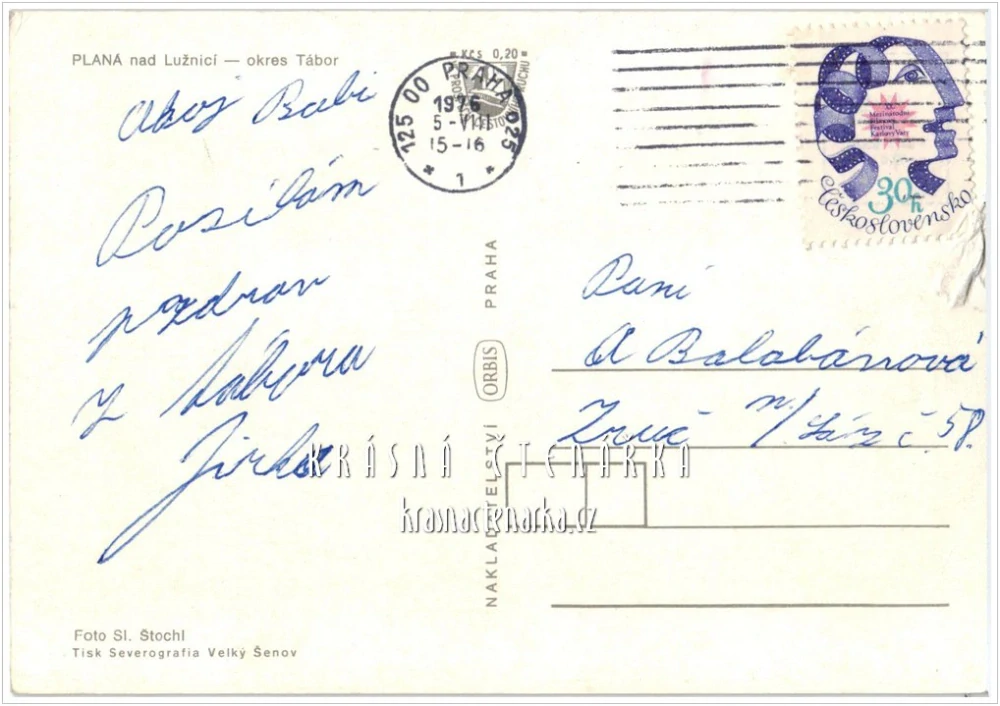 PLANÁ nad Lužnicí — okres Tábor
Ahoj Babi
Posílám
pozdrav
z tábora
Jirka
Kčs 0,20
125 00 PRAHA 025
1976
5-VIII
15-16
* 1 *
XX.
Mezinárodní
filmový
Festival
Karlovy Vary
30h
Československo
Paní
A Balabánová
Zruč n/Sáz č 58.
NAKLADATELSTVÍ ORBIS PRAHA
KRÁSNÁ ČTENÁRKA
krasnactenarka.cz
Foto Sl. Štochl
Tisk Severografia Velký Šenov